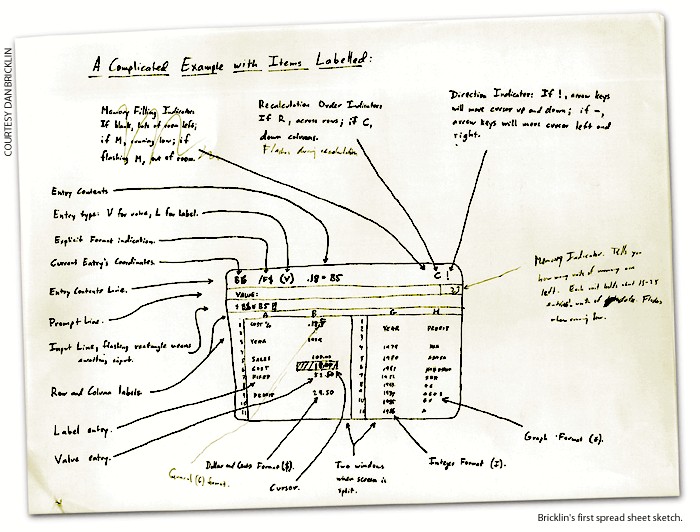 COURTESY DAN BRICKLIN
A Complicated Example with Items Labelled:
Memory Filling Indicator
If blank, lots of room left;
if M, running low; if
flashing M, out of room.
Recalculation Order Indicator
If R, across rows; if C,
down columns.
Flashes during recalculation
Direction Indicator: If !, arrow keys
will move cursor up and down; if -,
arrow keys will move cursor left and
right.
Entry Contents
Entry type: V for value, L for label.
Explicit Format indication.
Current Entry's Coordinates.
Entry Contents Line.
Prompt Line.
Input Line, flashing rectangle means
awaiting input.
Row and Column labels.
Label entry.
Value entry.
Memory Indicator. Tells you
how many units of memory are
left. Each unit holds about
when running low.
/F$ (V) .18 * B5
C !
VALUE:
A B G H
COST %
YEAR
YEAR PROFIT
SALES 100.00
COST
PROFIT
29.50
General (G) format.
Dollar and Cents Format ($).
Cursor.
Two windows
when screen is
split.
Integer Format (I).
Graph Format (G).
Bricklin's first spread sheet sketch.